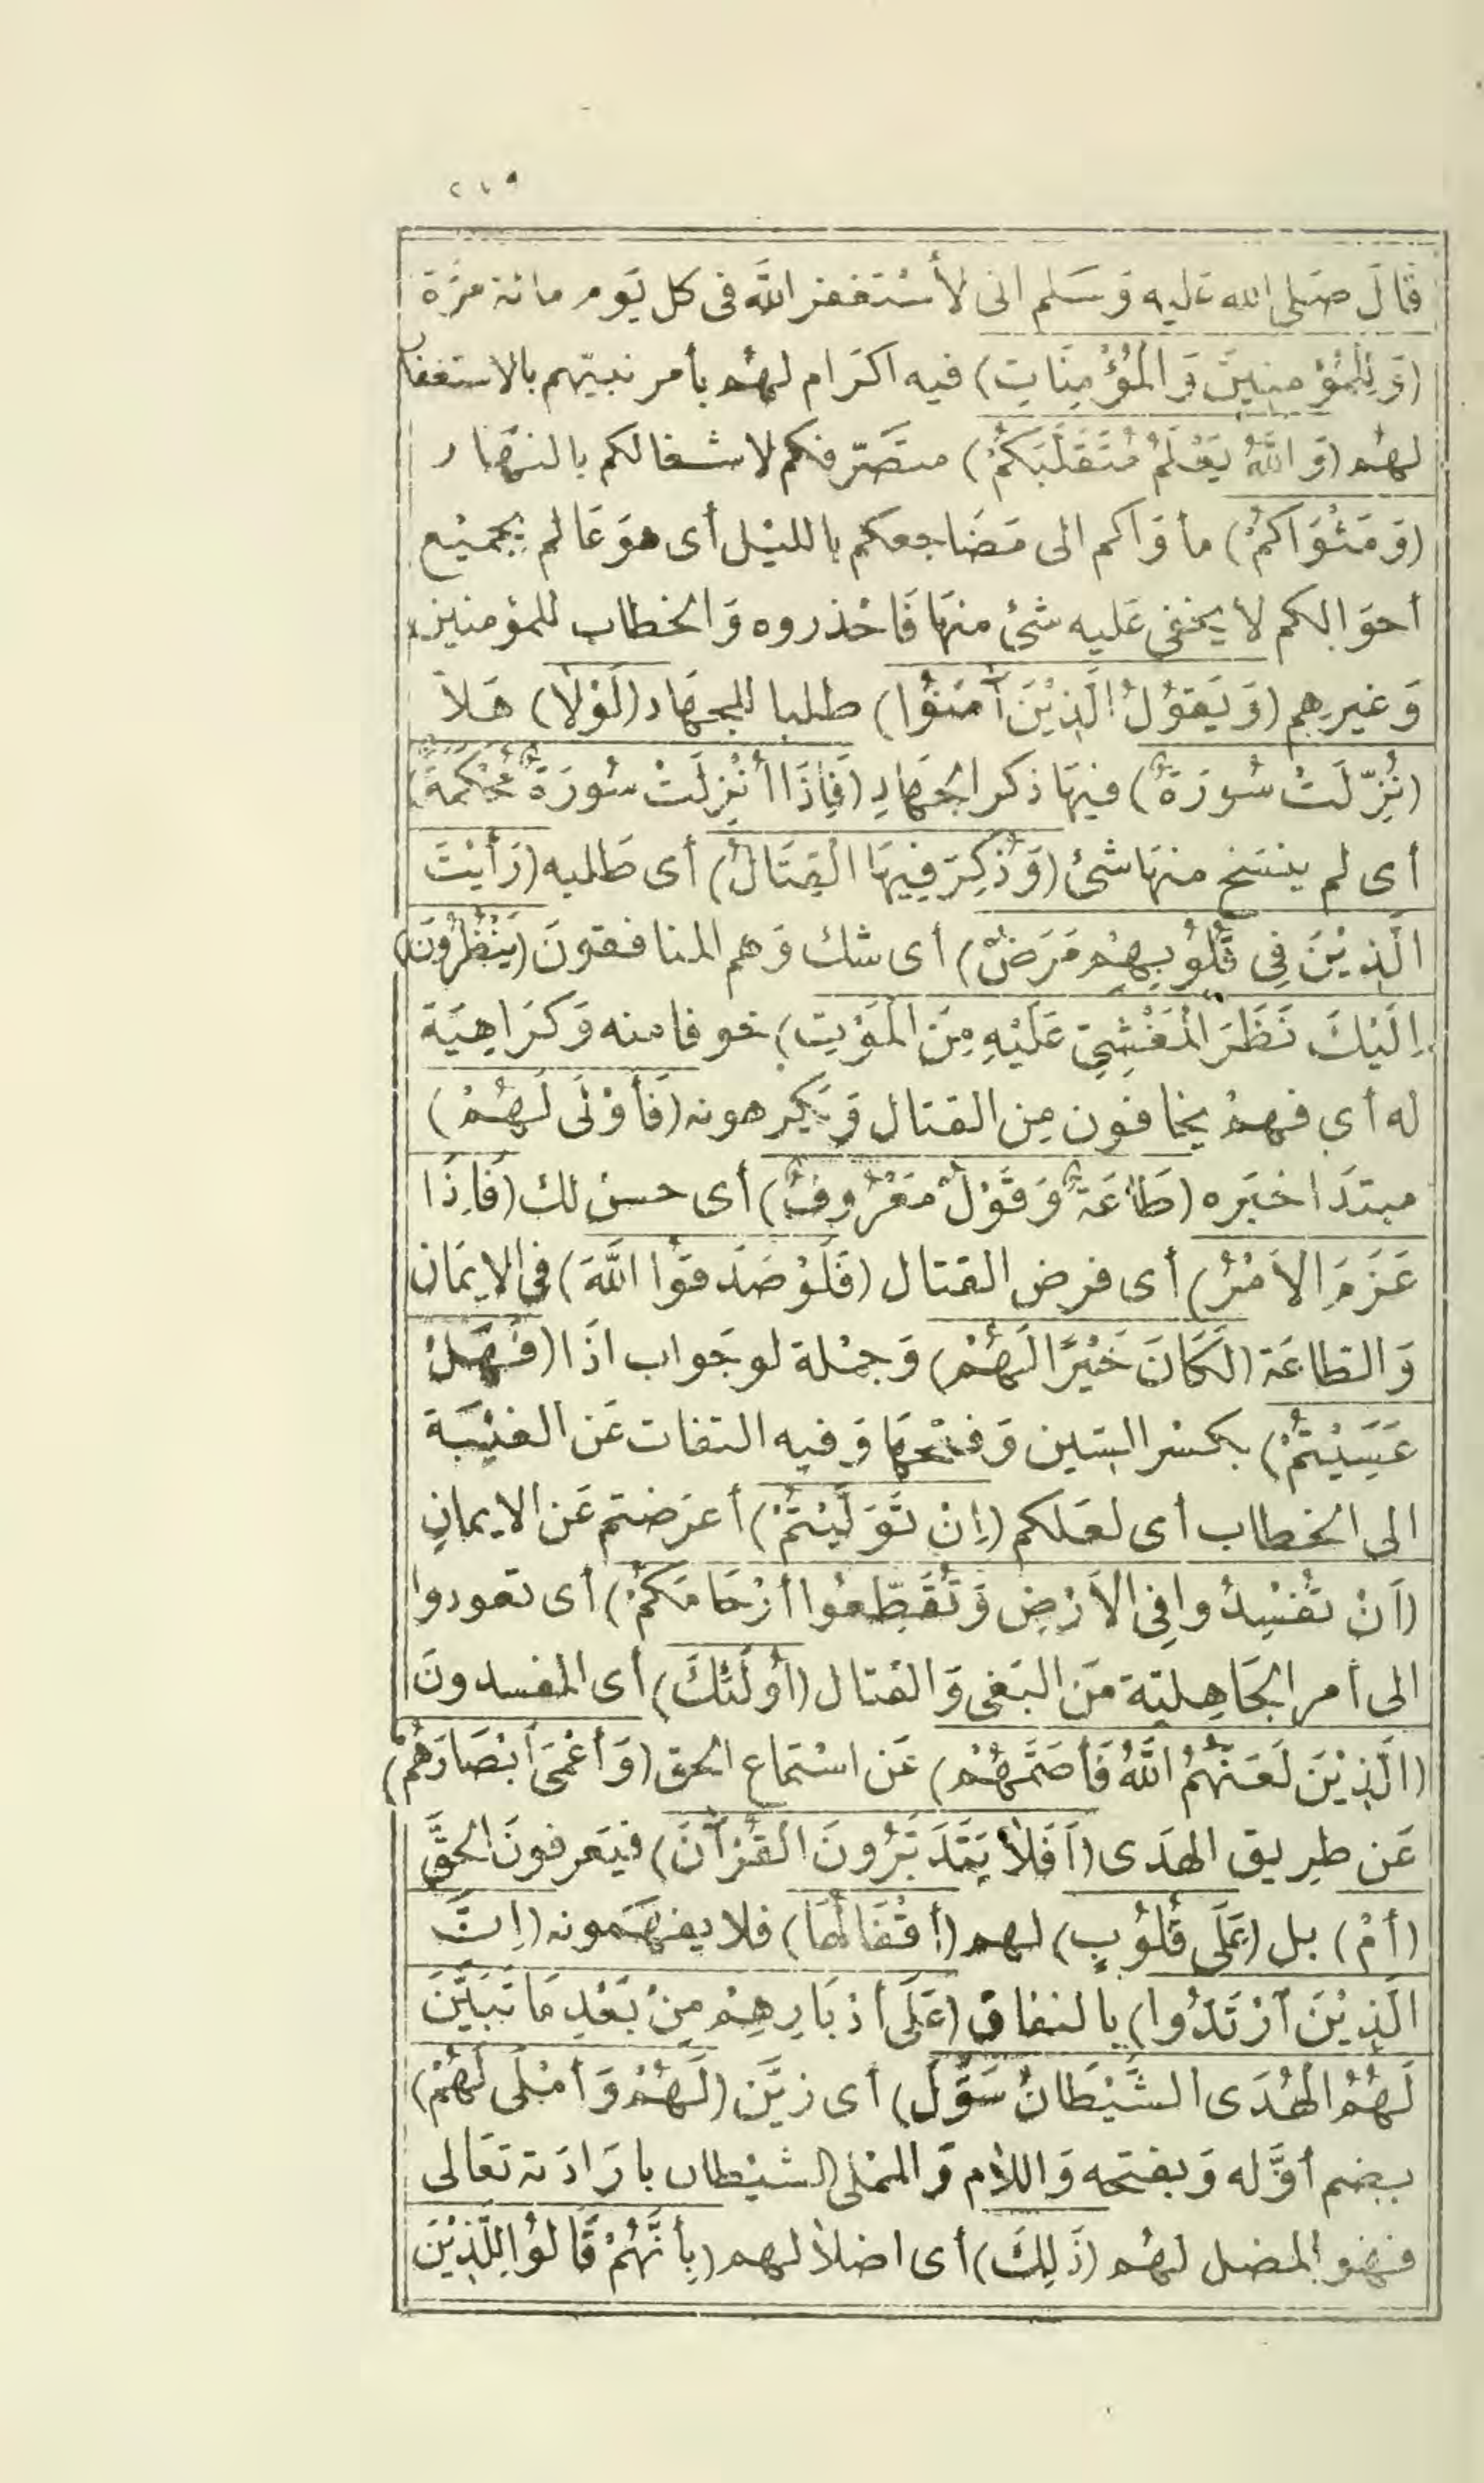 ٢١٩
قَالَ صَلى الله عَليه وَسَلم انى لأسْتغفر اللَّه فى كل يَوم مائة مَرَّة
(وَلِلْمُؤْمِنِينَ وَالْمُؤْمِنَاتِ) فيه اكرَام لهُم بأمر نبيّهم بالاستغفار
لهُم (وَاللَّهُ يَعْلَمُ مُتَقَلَّبَكُمْ) متصَرّفكم لاشغالكم بالنهَار
(وَمَثْوَاكُمْ) مأوَاكم الى مَضَاجعكم بالليْل أى هوَ عَالم بجميْع
أحوَالكم لا يخفى عَليه شئ منهَا فَاحْذروه وَالخطاب للمؤمنين
وَغيرهم (وَيَقُوْلُ الَّذِيْنَ آمَنُوْا) طلبا للجهَاد (لَوْلاَ) هَلاَّ
(نُزِّلَتْ سُورَةٌ) فيهَا ذكر الجهَادِ (فَإِذَا أُنْزِلَتْ سُورَةٌ مُحْكَمَةٌ)
أى لم ينسَخ منهَا شئ (وَذُكِرَ فِيهَا الْقِتَالُ) أى طَلبه (رَأَيْتَ
الَّذِيْنَ فِي قُلُوْبِهِمْ مَرَضٌ) أى شك وَهم المنافقونَ (يَنْظُرُوْنَ)
اِلَيْكَ نَظَرَ الْمَغْشِيِّ عَلَيْهِ مِنَ الْمَوْتِ) خوفا منه وَكرَاهِيَة
له أي فهمْ يخافون مِن القتال وَيَكرهونه (فَأَوْلَى لَهُمْ)
مبتدَا خبَره (طَاعَةٌ وَقَوْلٌ مَعْرُوفٌ) أى حسنٌ لك (فَاِذَا
عَزَمَ الاَمْرُ) أى فرض القتال (فَلَوْ صَدَقُوا اللَّهَ) فى الايمَان
وَالطاعَة (لَكَانَ خَيْرًا لَهُمْ) وَجمْلة لو جَواب اذَا (فَهَلْ
عَسَيْتُمْ) بكسْر السّين وَفتْحهَا وَفيه التفات عَن الغيْبَة
الى الخطاب أى لعَلكم (اِنْ تَوَلَّيْتُمْ) أعرَضتم عَن الايمانِ
(اَنْ تُفْسِدُوا فِي الاَرْضِ وَتُقَطِّعُوا أرْحَامَكُمْ) أى تعودوا
الى أمر الجَاهِليّة مَن البَغى وَالقتال (أُولَئِكَ) أى المفسدونَ
(الَّذِيْنَ لَعَنَهُمُ اللَّهُ فَأَصَمَّهُمْ) عَن اسْتماع الحق (وَأَعْمَى أَبْصَارَهُمْ)
عَن طرِيق الهدَى (اَفَلاَ يَتَدَبَّرُونَ الْقُرْآنَ) فيَعرفونَ الحَقَّ
(أمْ) بل (عَلَى قُلُوْبٍ) لهم (أقْفَالُهَا) فلا يفهَمونه (اِنَّ
الَّذِيْنَ ارْتَدُّوا) بالنفاق (عَلَى أدْبَارِهِمْ مِنْ بَعْدِ مَا تَبَيَّنَ
لَهُمُ الْهُدَى الشَّيْطَانُ سَوَّلَ) أى زيَّن (لَهُمْ وَأَمْلَى لَهُمْ)
بضم أوَّله وَبفتحه وَاللام وَالممْلى الشيْطان بارَادَته تعَالى
فهْو المضل لهُم (ذَلِكَ) أى اضلالهم (بِأَنَّهُمْ قَالُوْا لِلَّذِيْنَ